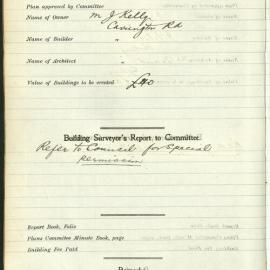 Plan approved by Committee
Name of Owner M J Kelly
Carrington Rd
Name of Builder "
Name of Architect "
Value of Buildings to be erected £40
Building Surveyor's Report to Committee.
Refer to Council for Special
permission
Report Book, Folio
Plans Committee Minute Book, page
Building Fee Paid